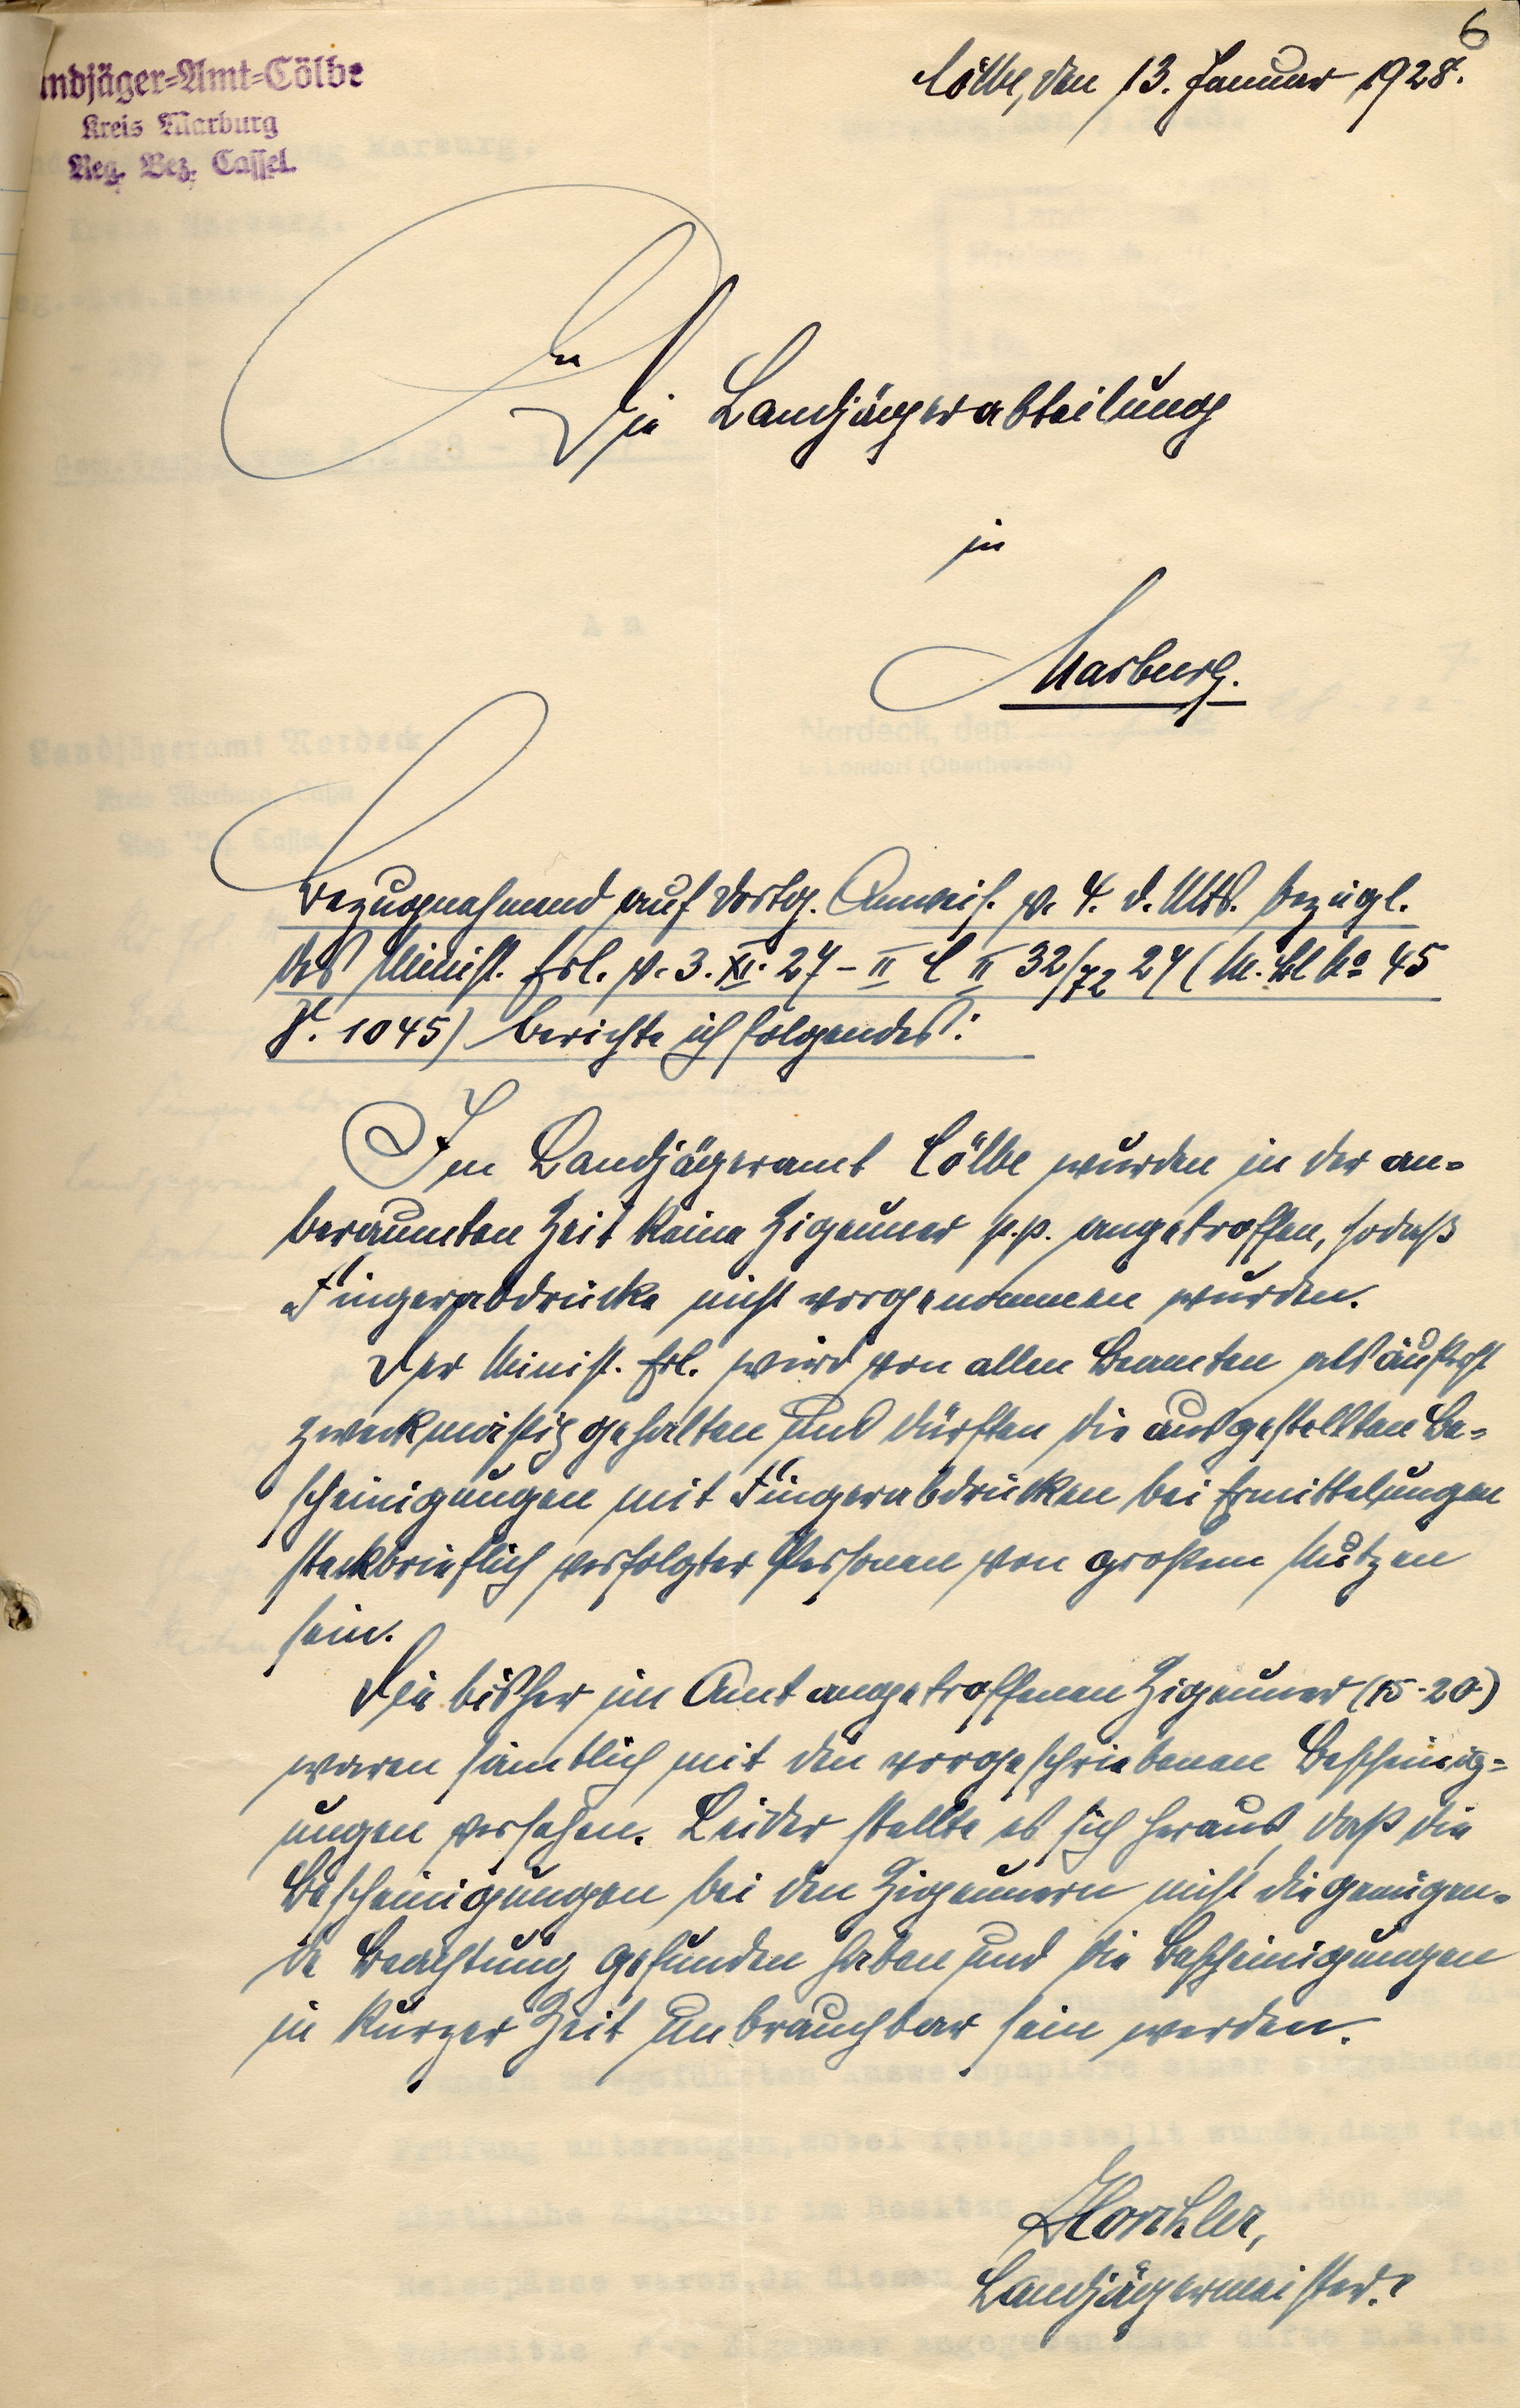 6
Cölbe, den 13. Januar 1928.
ndjäger-Amt-Cölbe
Kreis Marburg
Reg. Bez. Cassel.
An
Die Landjägerabteilung
in
Marburg.
Bezugnehmend auf dortg. Anweis. v. 4. d. Mts. bezügl.
des Minist. Erl. v. 3. XI. 27 - II C II 32/72 27 (M. Bl No 45
S. 1045) berichte ich folgendes:
Im Landjägeramt Cölbe wurden in der an-
beraumten Zeit keine Zigeuner p.p. angetroffen, sodaß
Fingerabdrücke nicht vorgenommen wurden.
Der Minist. Erl. wird von allen Beamten als äußerst
zweckmäßig gehalten und dürften die ausgestellten Be-
scheinigungen mit Fingerabdrücken bei Ermittelungen
steckbrieflich verfolgter Personen von großem Nutzen
sein.
Die bisher im Amt angetroffenen Zigeuner (15-20)
waren sämtlich mit den vorgeschriebenen Bescheinig-
ungen versehen. Leider stellte es sich heraus, daß die
Bescheinigungen bei den Zigeunern nicht die genügen-
de Beachtung gefunden haben und die Bescheinigungen
in kurzer Zeit unbrauchbar sein werden.
Landjägermeister.